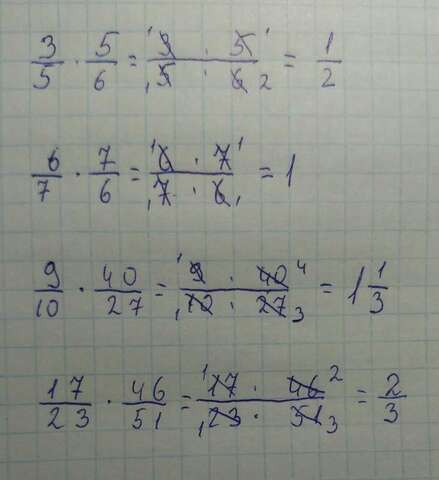 3/5 · 5/6 = (¹3 · 5¹)/(₁5 · 6₂) = 1/2
6/7 · 7/6 = (¹6 · 7¹)/(₁7 · 6₁) = 1
9/10 · 40/27 = (¹9 · 40⁴)/(₁10 · 27₃) = 1 1/3
17/23 · 46/51 = (¹17 · 46²)/(₁23 · 51₃) = 2/3